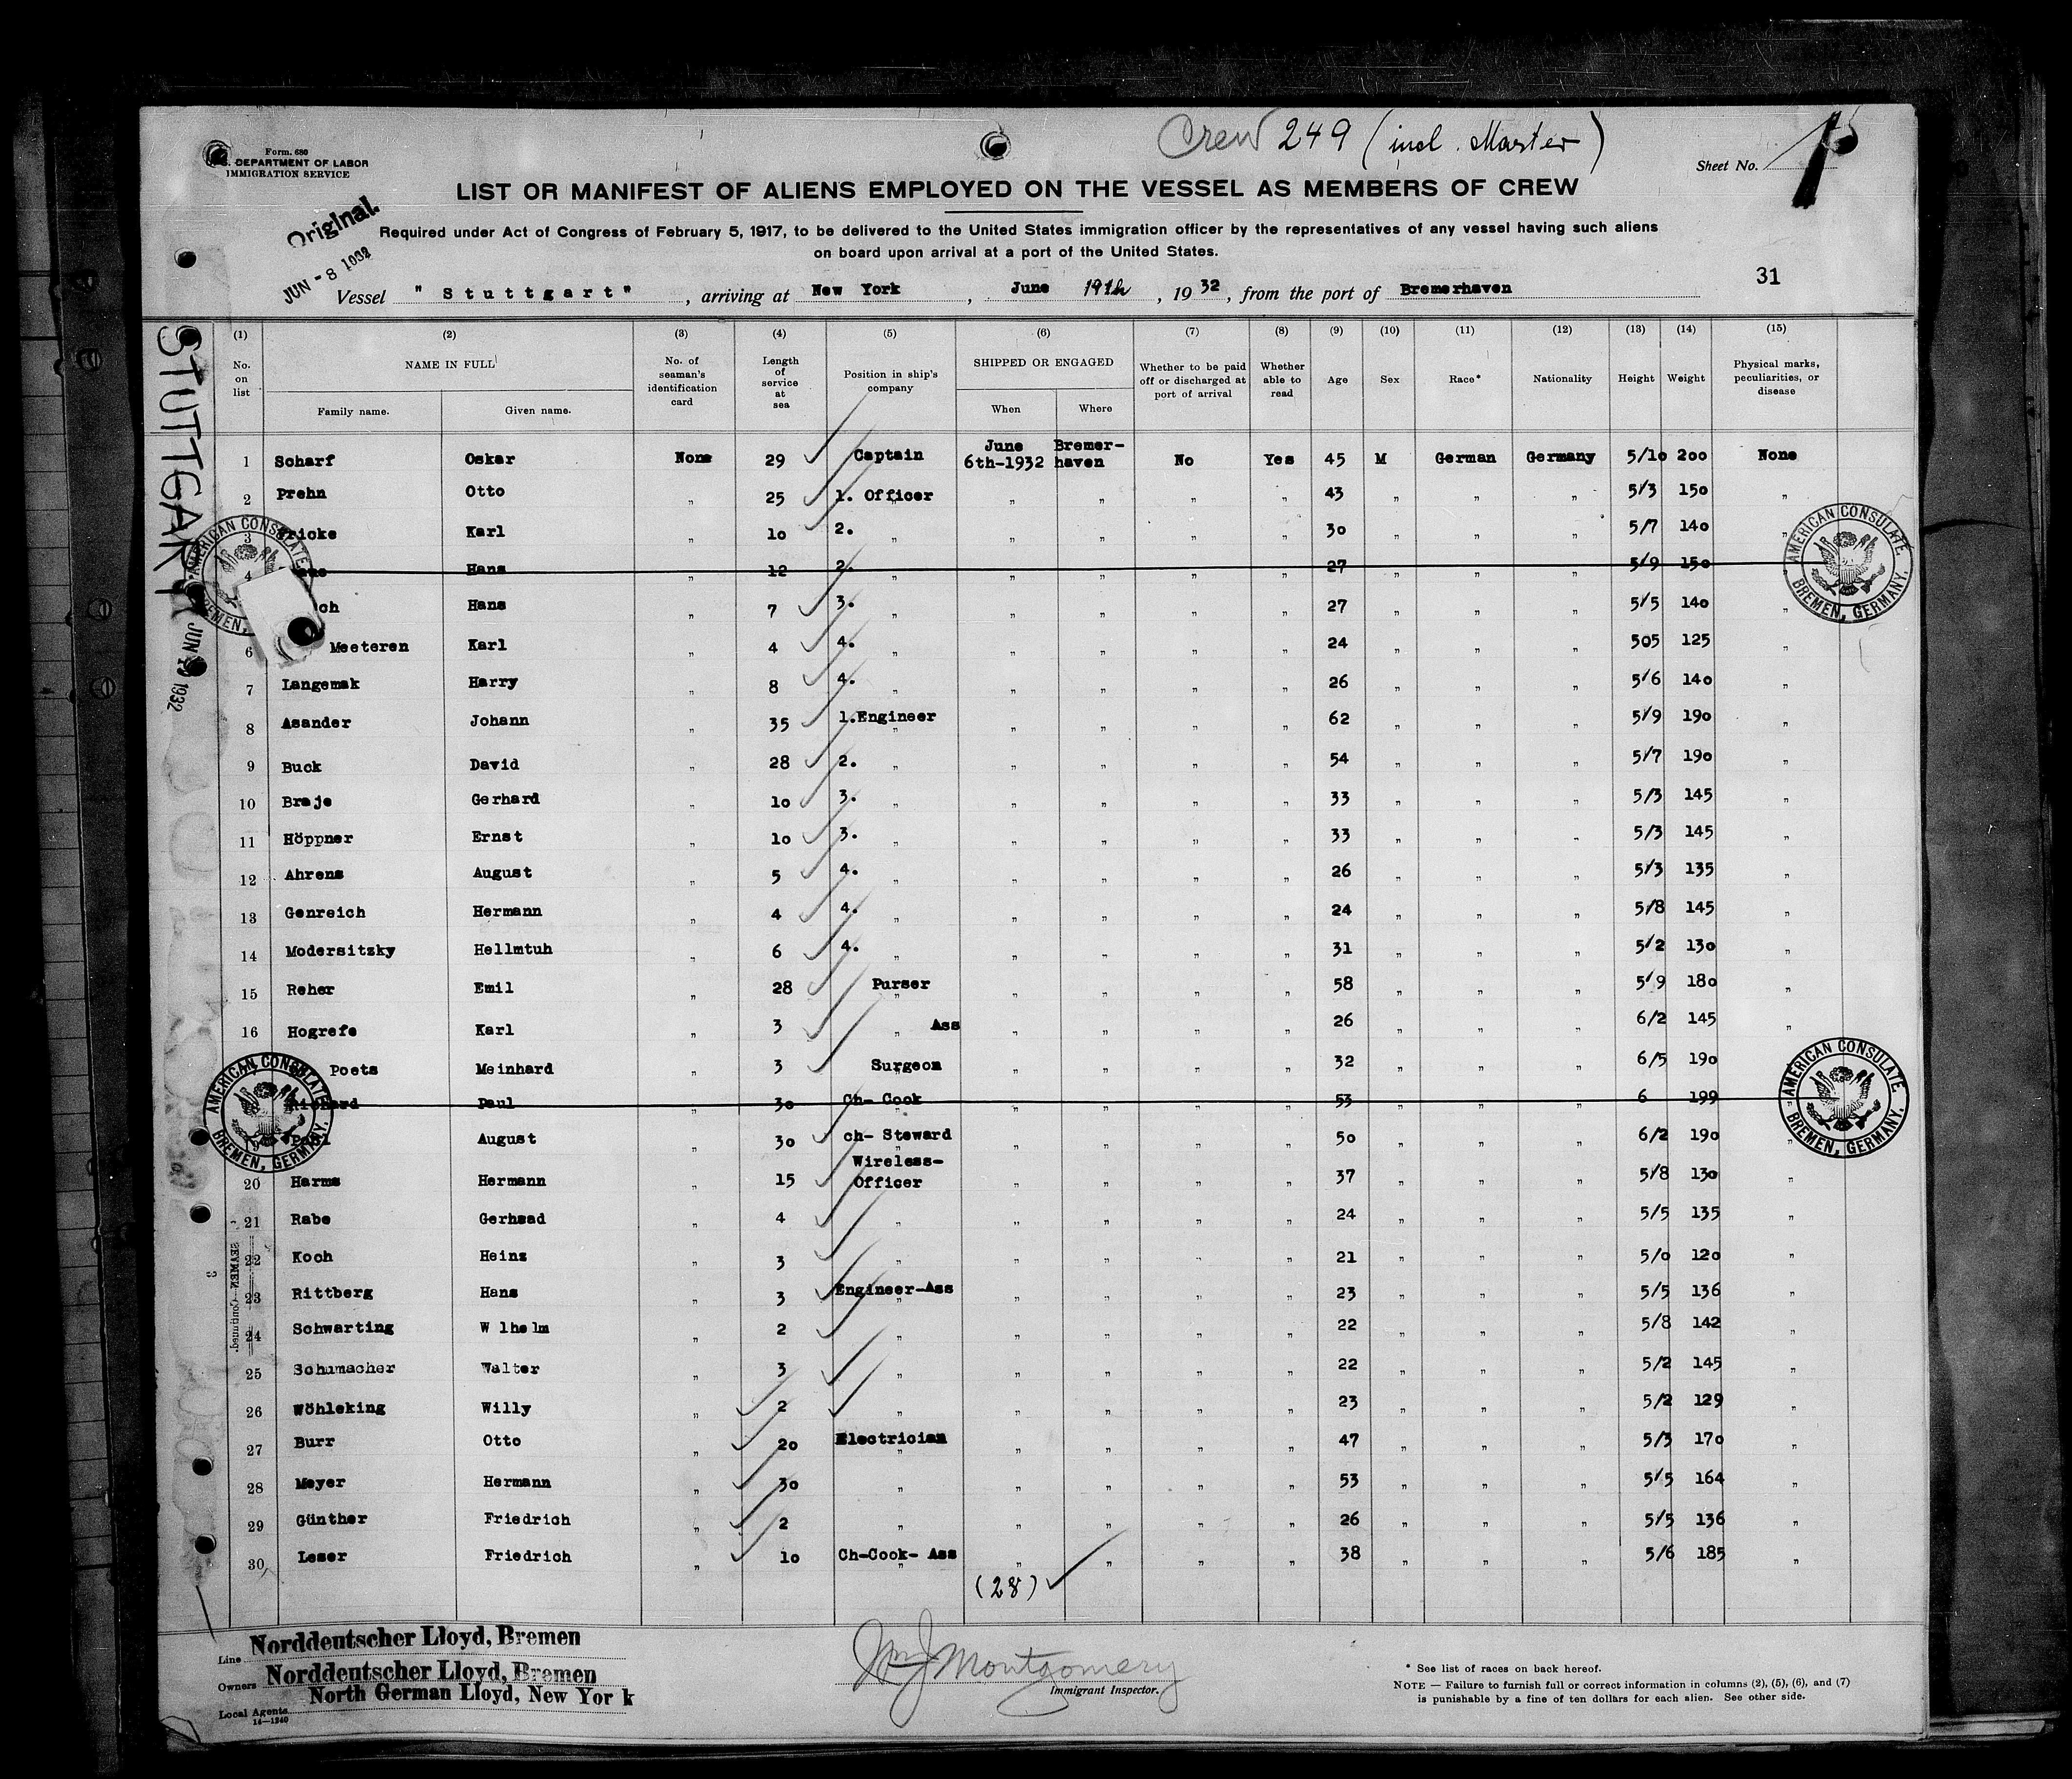 Crew 249 (incl. Master)
Form. 680
U.S. DEPARTMENT OF LABOR
IMMIGRATION SERVICE
Sheet No. 1
LIST OR MANIFEST OF ALIENS EMPLOYED ON THE VESSEL AS MEMBERS OF CREW
Original.
Required under Act of Congress of February 5, 1917, to be delivered to the United States immigration officer by the representatives of any vessel having such aliens
on board upon arrival at a port of the United States.
JUN - 8 1932
31
Vessel "Stuttgart", arriving at New York, June 19th, 1932, from the port of Bremerhaven
STUTTGART
JUN 19 1932
(1) (2) (3) (4) (5) (6) (7) (8) (9) (10) (11) (12) (13) (14) (15)
No. on list NAME IN FULL Family name. Given name. No. of seaman's identification card Length of service at sea Position in ship's company SHIPPED OR ENGAGED When Where Whether to be paid off or discharged at port of arrival Whether able to read Age Sex Race* Nationality Height Weight Physical marks, peculiarities, or disease
1 Scharf Oskar None 29 Captain June 6th-1932 Bremer-haven No Yes 45 M German Germany 5/10 200 None
2 Prehn Otto " 25 1. Officer " " " " 43 " " " 5/3 150 "
3 Fricke Karl " 10 2. " " " " " 30 " " " 5/7 140 "
4 Hans " 12 2. " " " " " 27 " " " 5/9 150
ch Hans " 7 3. " " " " " 27 " " " 5/5 140 "
6 Meeteren Karl " 4 4. " " " " " 24 " " " 505 125 "
7 Langemak Harry " 8 4. " " " " " 26 " " " 5/6 140 "
8 Asander Johann " 35 1.Engineer " " " " " 62 " " " 5/9 190 "
9 Buck David " 28 2. " " " " " 54 " " " 5/7 190 "
10 Braje Gerhard " 10 3. " " " " " 33 " " " 5/3 145 "
11 Höppner Ernst " 10 3. " " " " " 33 " " " 5/3 145 "
12 Ahrens August " 5 4. " " " " " 26 " " " 5/3 135 "
13 Genreich Hermann " 4 4. " " " " " 24 " " " 5/8 145 "
14 Modersitzky Hellmtuh " 6 4. " " " " " 31 " " " 5/2 130 "
15 Reher Emil " 28 Purser " " " " " 58 " " " 5/9 180 "
16 Hogrefe Karl " 3 " Ass " " " " 26 " " " 6/2 145 "
Poets Meinhard " 3 Surgeon " " " " 32 " " " 6/5 190 "
18 Richard Paul " 30 Ch- Cook " " " " 53 " " " 6 199
19 Pohl August " 30 ch- Steward " " " " " 50 " " " 6/2 190 "
20 Harms Hermann " 15 Wireless-Officer " " " " 37 " " " 5/8 130 "
21 Rabe Gerhsad " 4 " " " " " 24 " " " 5/5 135 "
22 Koch Heinz " 3 " " " " " 21 " " " 5/0 120 "
23 Rittberg Hans " 3 Engineer-Ass " " " " " 23 " " " 5/5 136 "
24 Schwarting W lhelm " 2 " " " " " 22 " " " 5/8 142 "
25 Schumacher Walter " 3 " " " " " 22 " " " 5/2 145 "
26 Wöhleking Willy " 2 " " " " " 23 " " " 5/2 129 "
27 Burr Otto " 20 Electrician " " " " " 47 " " " 5/3 170 "
28 Meyer Hermann " 30 " " " " " 53 " " " 5/5 164 "
29 Günther Friedrich " 2 " " " " " 26 " " " 5/5 136 "
30 Leser Friedrich " 10 Ch-Cook- Ass " " " " " 38 " " " 5/6 185 "
(28)
AMERICAN CONSULATE
BREMEN, GERMANY.
AMERICAN CONSULATE
BREMEN, GERMANY.
AMERICAN CONSULATE
BREMEN, GERMANY.
AMERICAN CONSULATE
BREMEN, GERMANY.
SEAMEN—Continued.
Line Norddeutscher Lloyd, Bremen
Owners Norddeutscher Lloyd, Bremen
Local Agents North German Lloyd, New York
14—1240
Wm J Montgomery
Immigrant Inspector.
* See list of races on back hereof.
NOTE — Failure to furnish full or correct information in columns (2), (5), (6), and (7)
is punishable by a fine of ten dollars for each alien. See other side.